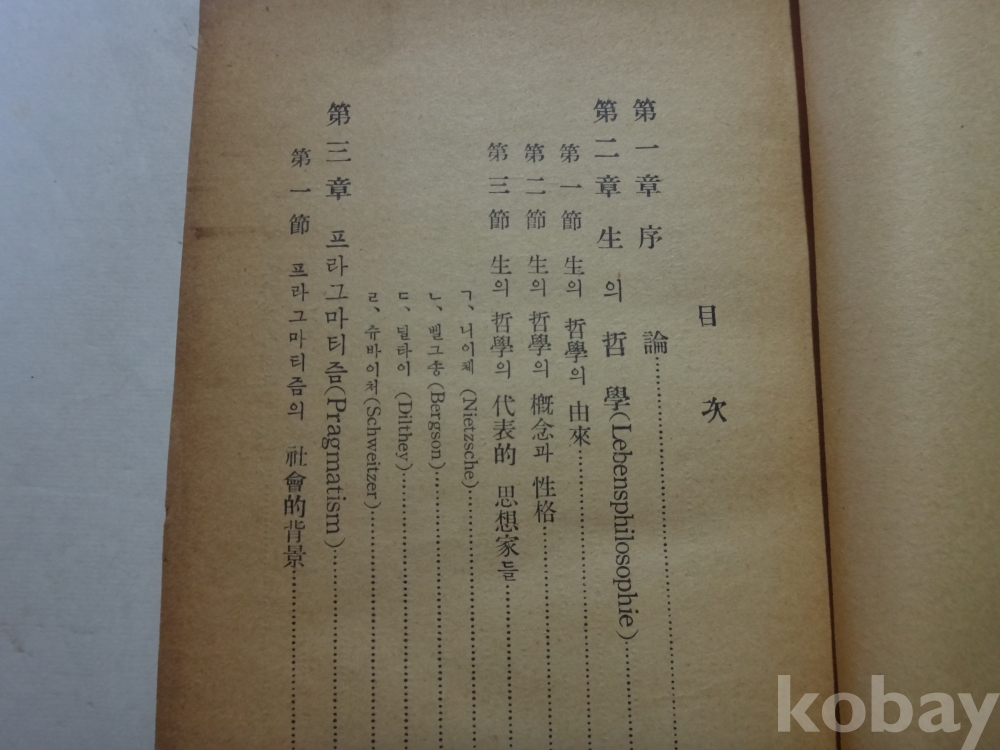 目次
第一章 序論
第二章 生의 哲學(Lebensphilosophie)
第一節 生의 哲學의 由來
第二節 生의 哲學의 槪念과 性格
第三節 生의 哲學의 代表的 思想家들
ㄱ、니이체 (Nietzsche)
ㄴ、벨그송 (Bergson)
ㄷ、딜타이 (Dilthey)
ㄹ、슈바이처(Schweitzer)
第三章 프라그마티즘(Pragmatism)
第一節 프라그마티즘의 社會的背景
kobay